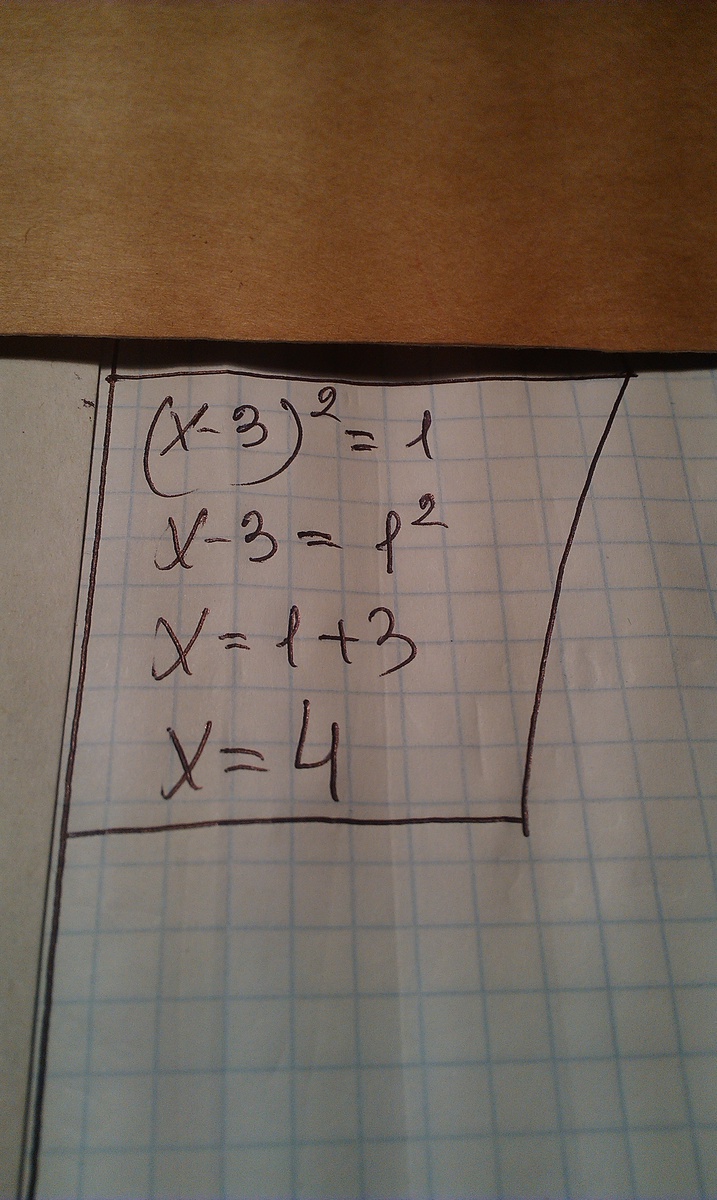 (x-3)² = 1
x-3 = 1²
x = 1+3
x = 4